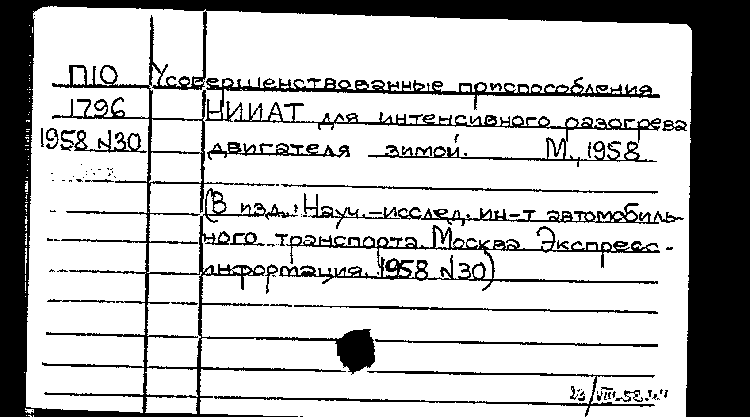 П10 Усовершенствованные приспособления
1796 НИИАТ для интенсивного разогрева
1958 N30 двигателя зимой. М., 1958
(В изд.: Науч.-исслед. ин-т автомобиль-
ного транспорта. Москва. Экспресс-
информация. 1958 N30)
23/VIII-58